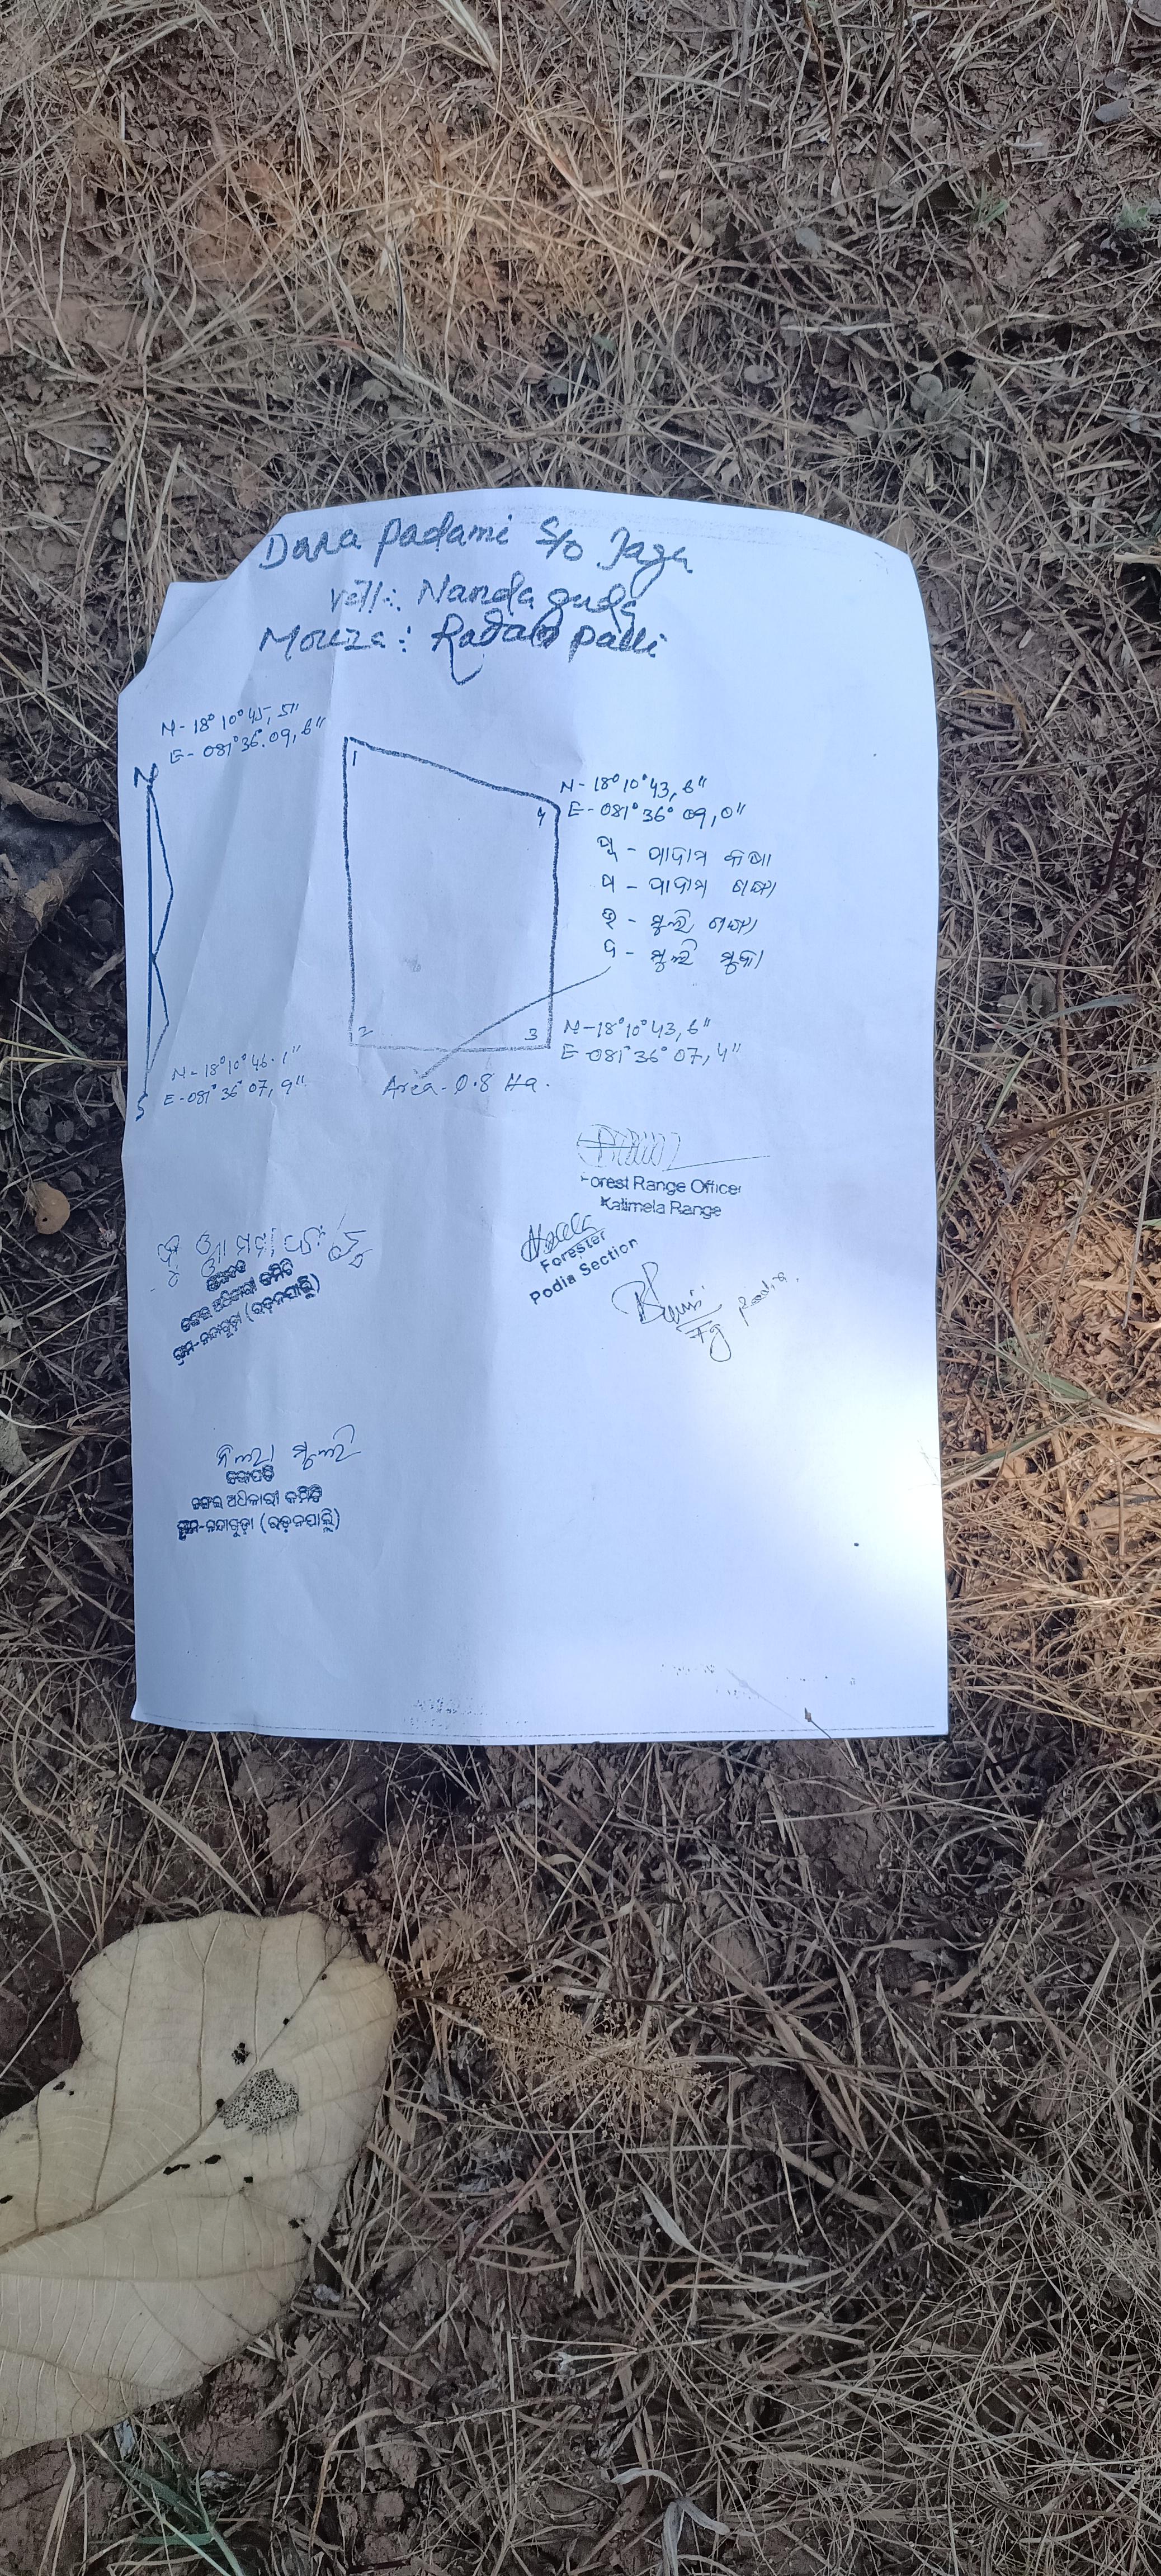 Dara Padami S/o Jaga
Vill: Nandaguda
Mouza: Radalpalli
N- 18° 10° 45, 5"
E- 081° 36. 09, 6"
N
1
4
N- 18° 10° 43, 6"
E- 081° 36° 09, 0"
ପୂ - ପାଦାମ
ପ - ପାଦାମ ଗଙ୍ଗା
ଉ - ମୁଲି ଗଙ୍ଗା
ଦ - ମୁଲି ମୁକା
2
3
N- 18° 10° 43, 6"
E- 081° 36° 07, 4"
N- 18° 10° 46.1"
E- 081° 36° 07, 9"
S
Area- 0.8 Ha.
Forest Range Officer
Kalimela Range
Forester
Podia Section
Fg Podia
ଜଙ୍ଗଲ ଅଧିକାରୀ କମିଟି
ଗ୍ରାମ-ନନ୍ଦାଗୁଡ଼ା (ରଡ଼ନପାଲ୍ଲି)
ସଭାପତି
ଜଙ୍ଗଲ ଅଧିକାରୀ କମିଟି
ଗ୍ରାମ-ନନ୍ଦାଗୁଡ଼ା (ରଡ଼ନପାଲ୍ଲି)